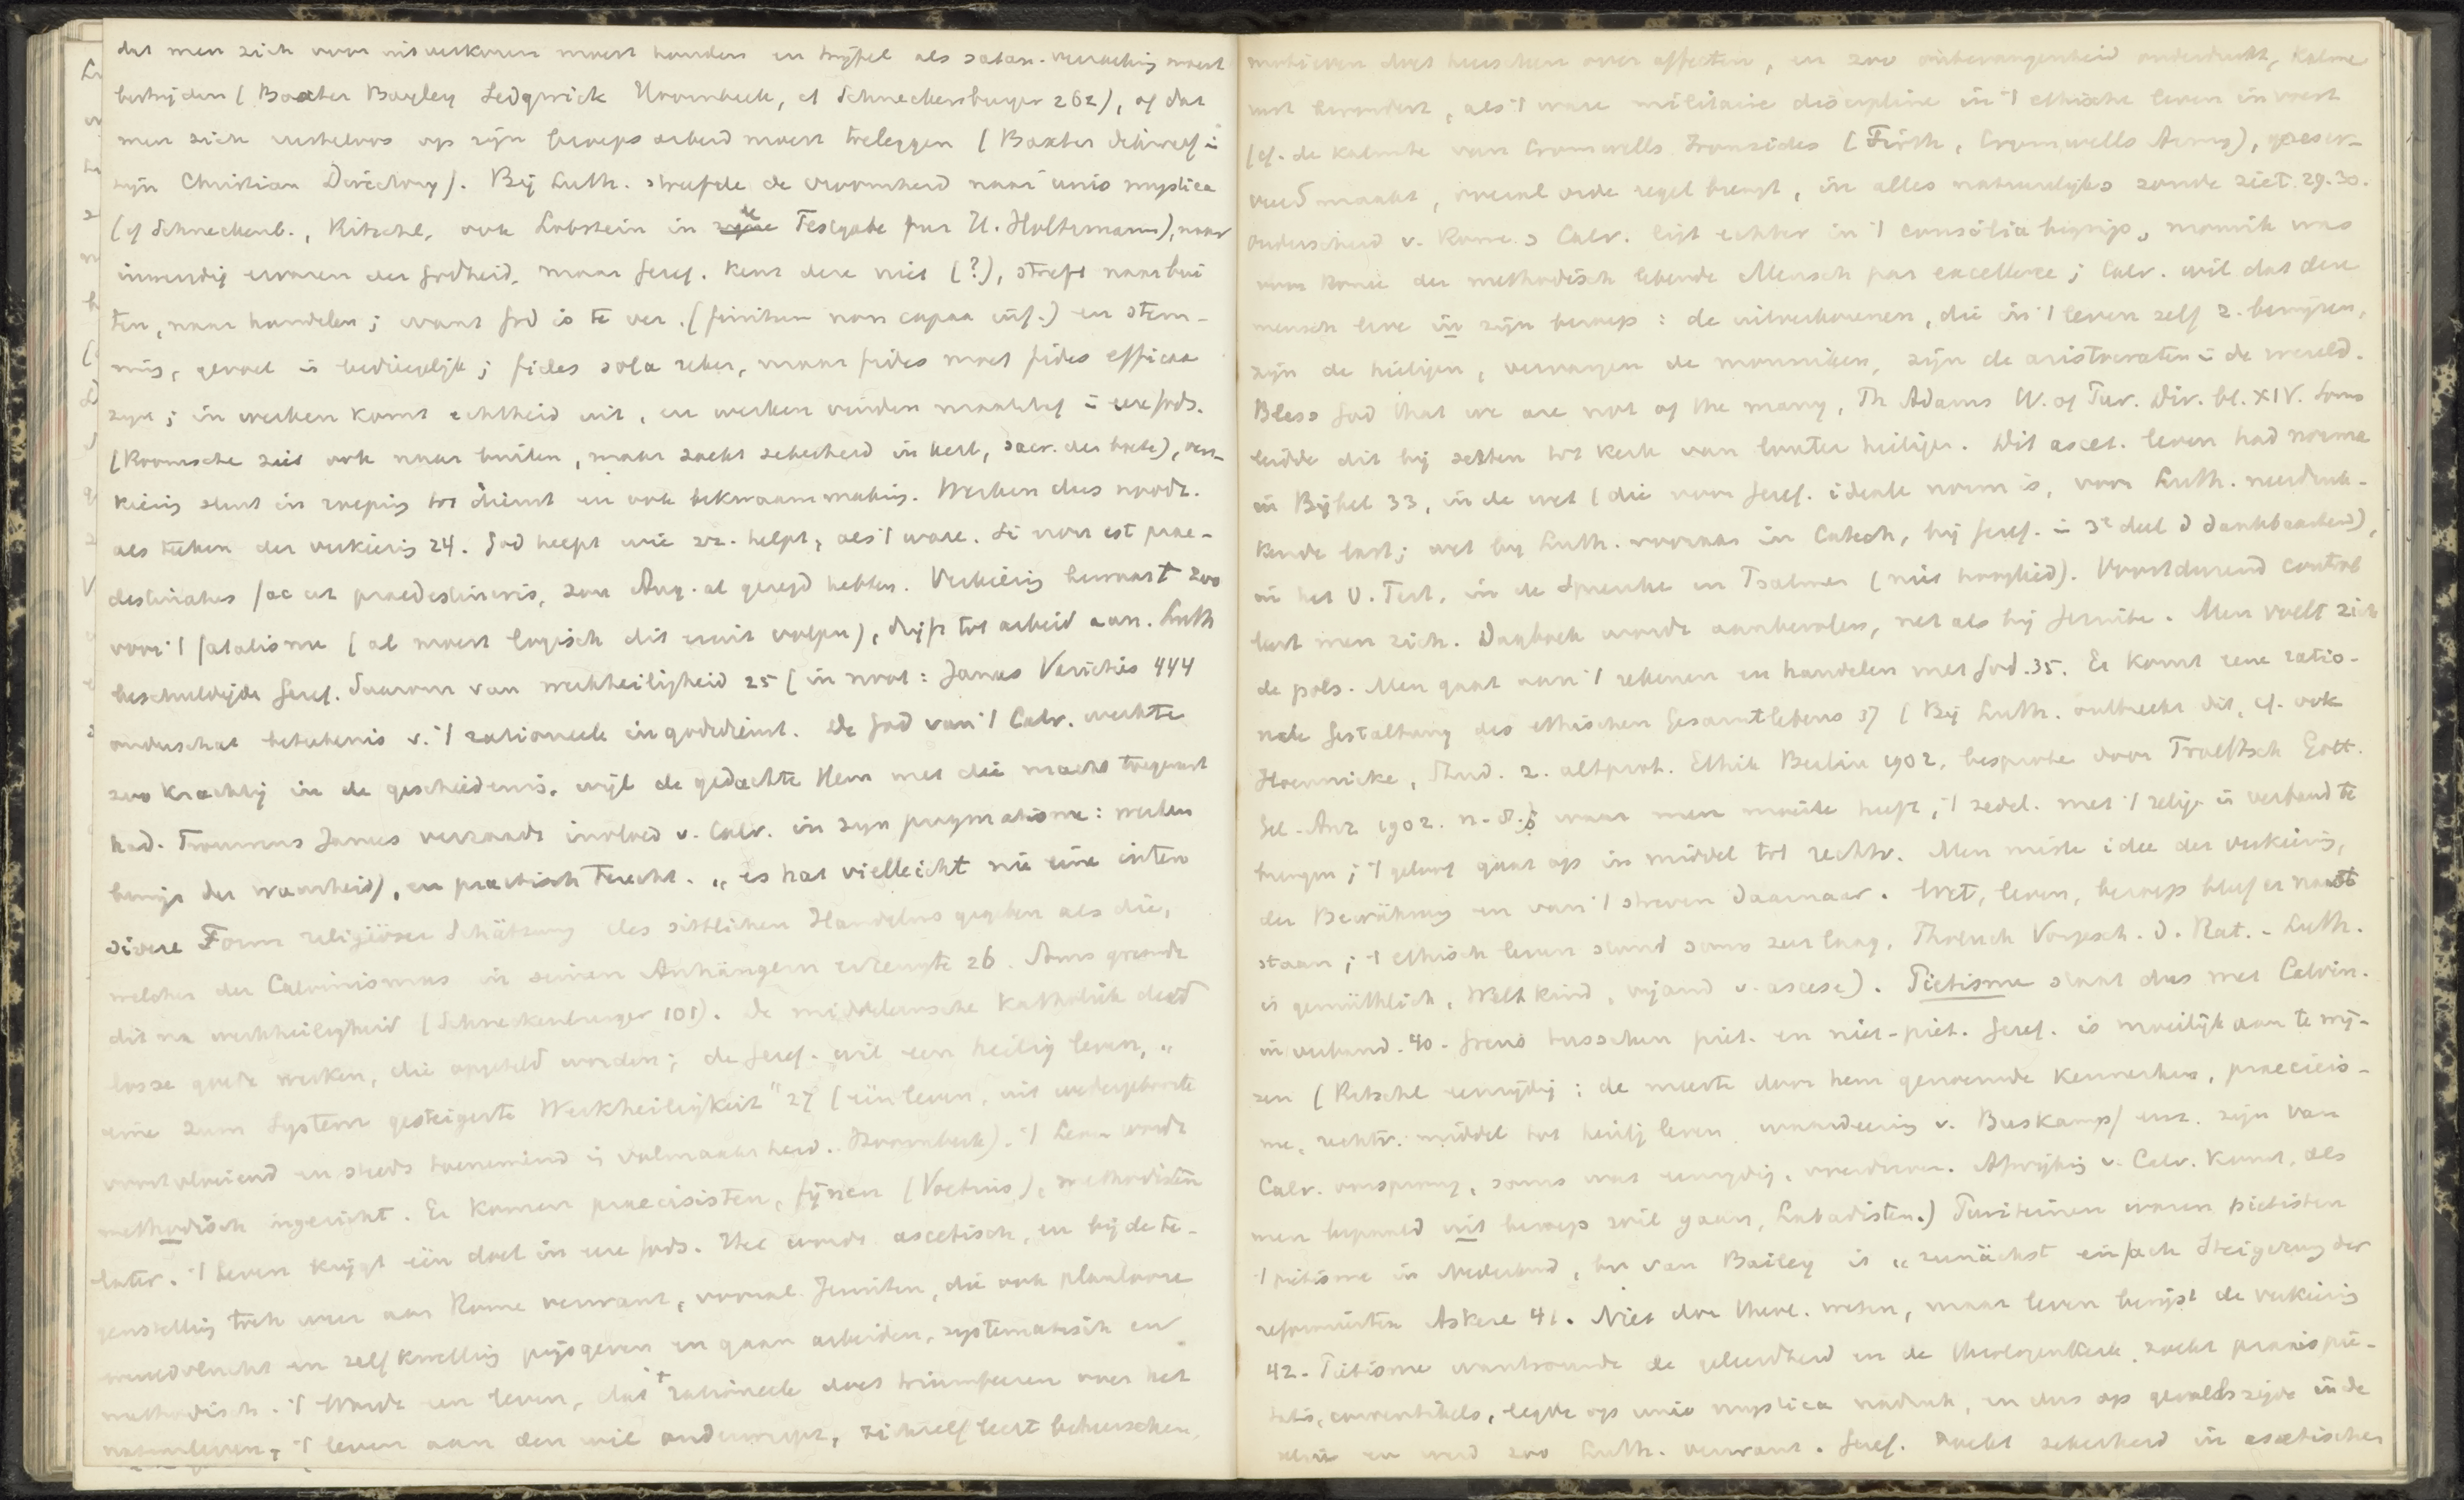 dat men zich voor uitverkoren moest houden en twijfel als satan. verzoeking moest
bestrijden (Baxter Bayley Sedgwick Hoornbeek, cf Schneckenburger 262), of dat
men zich rusteloos op zijn beroepsarbeid moest toeleggen (Baxter dikwerf i
zijn Christian Directory). Bij Luth. streefde de vroomheid naar unio mystica
(cf Schneckenb., Ritschl, ook Lobstein in de Festgabe fur H. Holtzmann), naar
inwendig ervaren der Godheid, maar Geref. kent deze niet (?), streeft naar bui
ten, naar handelen; want God is te ver. (finitum non capax inf.) en stem-
ming, gevoel is bedriegelijk; fides sola zeker, maar fides moet fides efficax
zijn; in werken komt echtheid uit, en werken vinden maatstaf i eere Gods.
(Roomsche ziet ook naar buiten, maar zoekt zekerheid in kerk, sacr. der boete), ver-
kiezing sluit in roeping tot dienst en ook bekwaammaking. Werken dus noodz.
als teeken der verkiezing 24. God helpt wie zz. helpt, als 't ware. Si non est prae-
destinatus fac ut praedestineris, zou Aug. al gezegd hebben. Verkiezing bewaart zoo
voor 't fatalisme (al moest logisch dit eruit volgen), drijft tot arbeid aan. Luth
beschuldigde Geref. daarom van werkheiligheid 25 (in noot: James Varieties 444
onderschat beteekenis v. 't rationeele in godsdienst. De God van 't Calv. werkte
zoo krachtig in de geschiedenis, wijl de gedachte Hem met die macht toegerust
had. Trouwens James verraadt invloed v. Calv. in zijn pragmatisme: werken
bewijs der waarheid), en practisch terecht. „es hat vielleicht nie eine inten
sivere Form religiöser Schätzung des sittlichen Handelns gegeben als die,
welcher der Calvinismus in seinen Anhängern erzeugte 26. Soms grensde
dit na werkheiligheid (Schneckenburger 101). De middeleeuwsche Katholiek deed
losse goede werken, die opgeteld worden; de Geref. wil een heilig leven, „
eine zum System gesteigerte Werkheiligkeit" 27 (één leven, uit wedergeboorte
voortvloeiend en steeds toenemend i volmaaktheid. Hoornbeek). 't Leven wordt
methodisch ingericht. Er komen praecisisten, fijnen (Voetius), methodisten
later. 't Leven krijgt één doel in eere Gods. Het wordt ascetisch, en bij de te-
genstelling toch weer aan Rome verwant, vooral Jezuiten, die ook planlooze
wereldvlucht en zelfkwelling prijsgeven en gaan arbeiden, systematisch en
methodisch. 't Wordt een leven, dat 't rationeele doet triumfeeren over het
natuurleven, 't leven aan den wil onderwerpt, zichzelf leert beheerschen,
motieven doet heerschen over affecten, en zoo onbevangenheid onderdrukt, kalme
rust bevordert, als 't ware militaire discipline in 't ethische leven invoert
(cf. de kalmte van Cromwells Ironsides (Firth, Cromwells Army), gereser-
veerd maakt, overal orde regel brengt, in alles natuurlijks zonde ziet 29.30.
Onderscheid v. Rome & Calv. ligt echter in 't consilia begrip, monnik was
voor Rome der methodisch lebende Mensch par excellence; Calv. wil dat deze
mensch leve in zijn beroep: de uitverkorenen, die in 't leven zelf z. bewijzen,
zijn de heiligen, vervangen de monniken, zijn de aristocraten i de wereld.
Bless God that we are not of the many, Th Adams W. of Pur. Div. bl. XIV. Soms
leidde dit bij secten tot kerk van louter heiligen. Dit ascet. leven had norme
in Bijbel 33, in de wet (die voor Geref. ideale norm is, voor Luth. neerdruk-
kende last; wet bij Luth. vooraan in Catech, bij Geref. i 3e deel d dankbaarheid),
in het O. Test. in de Spreuke en Psalmen (niet hooglied). Voortdurend controle
leert men zich. Dagboek wordt aanbevolen, net als bij Jezuite. Men voelt zich
de pols. Men gaat aan 't rekenen en handelen met God. 35. Er komt eene ratio-
nele Gestaltung des ethischen Gesamtlebens 37 (Bij Luth. ontbreekt dit, cf. ook
Hoennicke, Stud. z. altprot. Ethik Berlin 1902, besproke door Troeltsch Gött.
Gel-Anz 1902. n. 8.; waar men moeite heeft, 't zedel. met 't relig. in verband te
brengen; 't geloof gaat op in middel tot rechtv. Men miste idee der verkiezing,
der Bewährung en van 't streven daarnaar. Wet, leven, beroep bleef er naast
staan; 't ethisch leven stond soms zeer laag, Tholuck Vorgesch. d. Rat. - Luth.
is gemüthlich, Weltkind, vijand v. ascese). Pietisme staat dus met Calvin.
in verband. 40. Grens tusschen piet. en niet-piet. Geref. is moeilijk aan te wij-
zen (Ritschl eenzijdig: de meeste door hem genoemde kenmerken, praecisis-
me, rechtv. middel tot heilig leven, waardeering v. Buskampf enz. zijn van
Calv. oorsprong, soms wat eenzijdig, overdreven. Afwijking v. Calv. komt, als
men bepaald uit beroep wil gaan, Labadisten.) Puriteinen waren pietisten
't pietisme in Nederland, bv van Bailey is „zunächst einfach Steigerung der
reformierten Askese 41. Niet door theol. weten, maar leven bewijst de verkiezing
42. Pietisme wantrouwde de geleerdheid en de theologenkerk, zocht praxis pie-
tatis, conventikels, legde op unio mystica nadruk, en dus op gevoelszijde in de
relig en werd zoo Luth. verwant. Geref. zoekt zekerheid in ascetischen